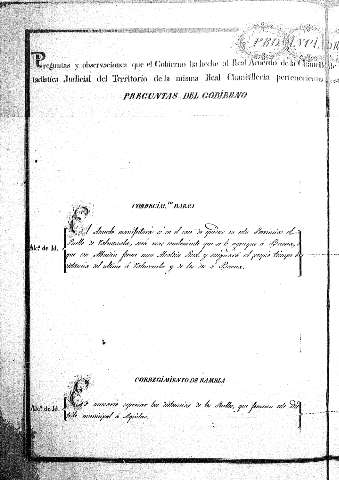 PROVINCIA DE
Preguntas y observaciones que el Gobierno ha hecho al Real Acuerdo de la Chancill
tadistica Judicial del Territorio de la misma Real Chancilleria perteneciente
PREGUNTAS DEL GOBIERNO
CORREGIM.to BAEZA
Alc.a de Id. El Acuerdo manifestará si en el caso de quedar en esta Provincia el
Pueblo de será mas conveniente que se le agregue a Baeza, ó
que con forme una Alcaldia Real, y asignará al propio tiempo la
distancia del ultimo á y de los dos á Baeza.
CORREGIMIENTO DE RAMBLA
Alc.a de Id. Es necesario expresar las distancias de los Pueblos, que forman este
municipal á Aguilar.